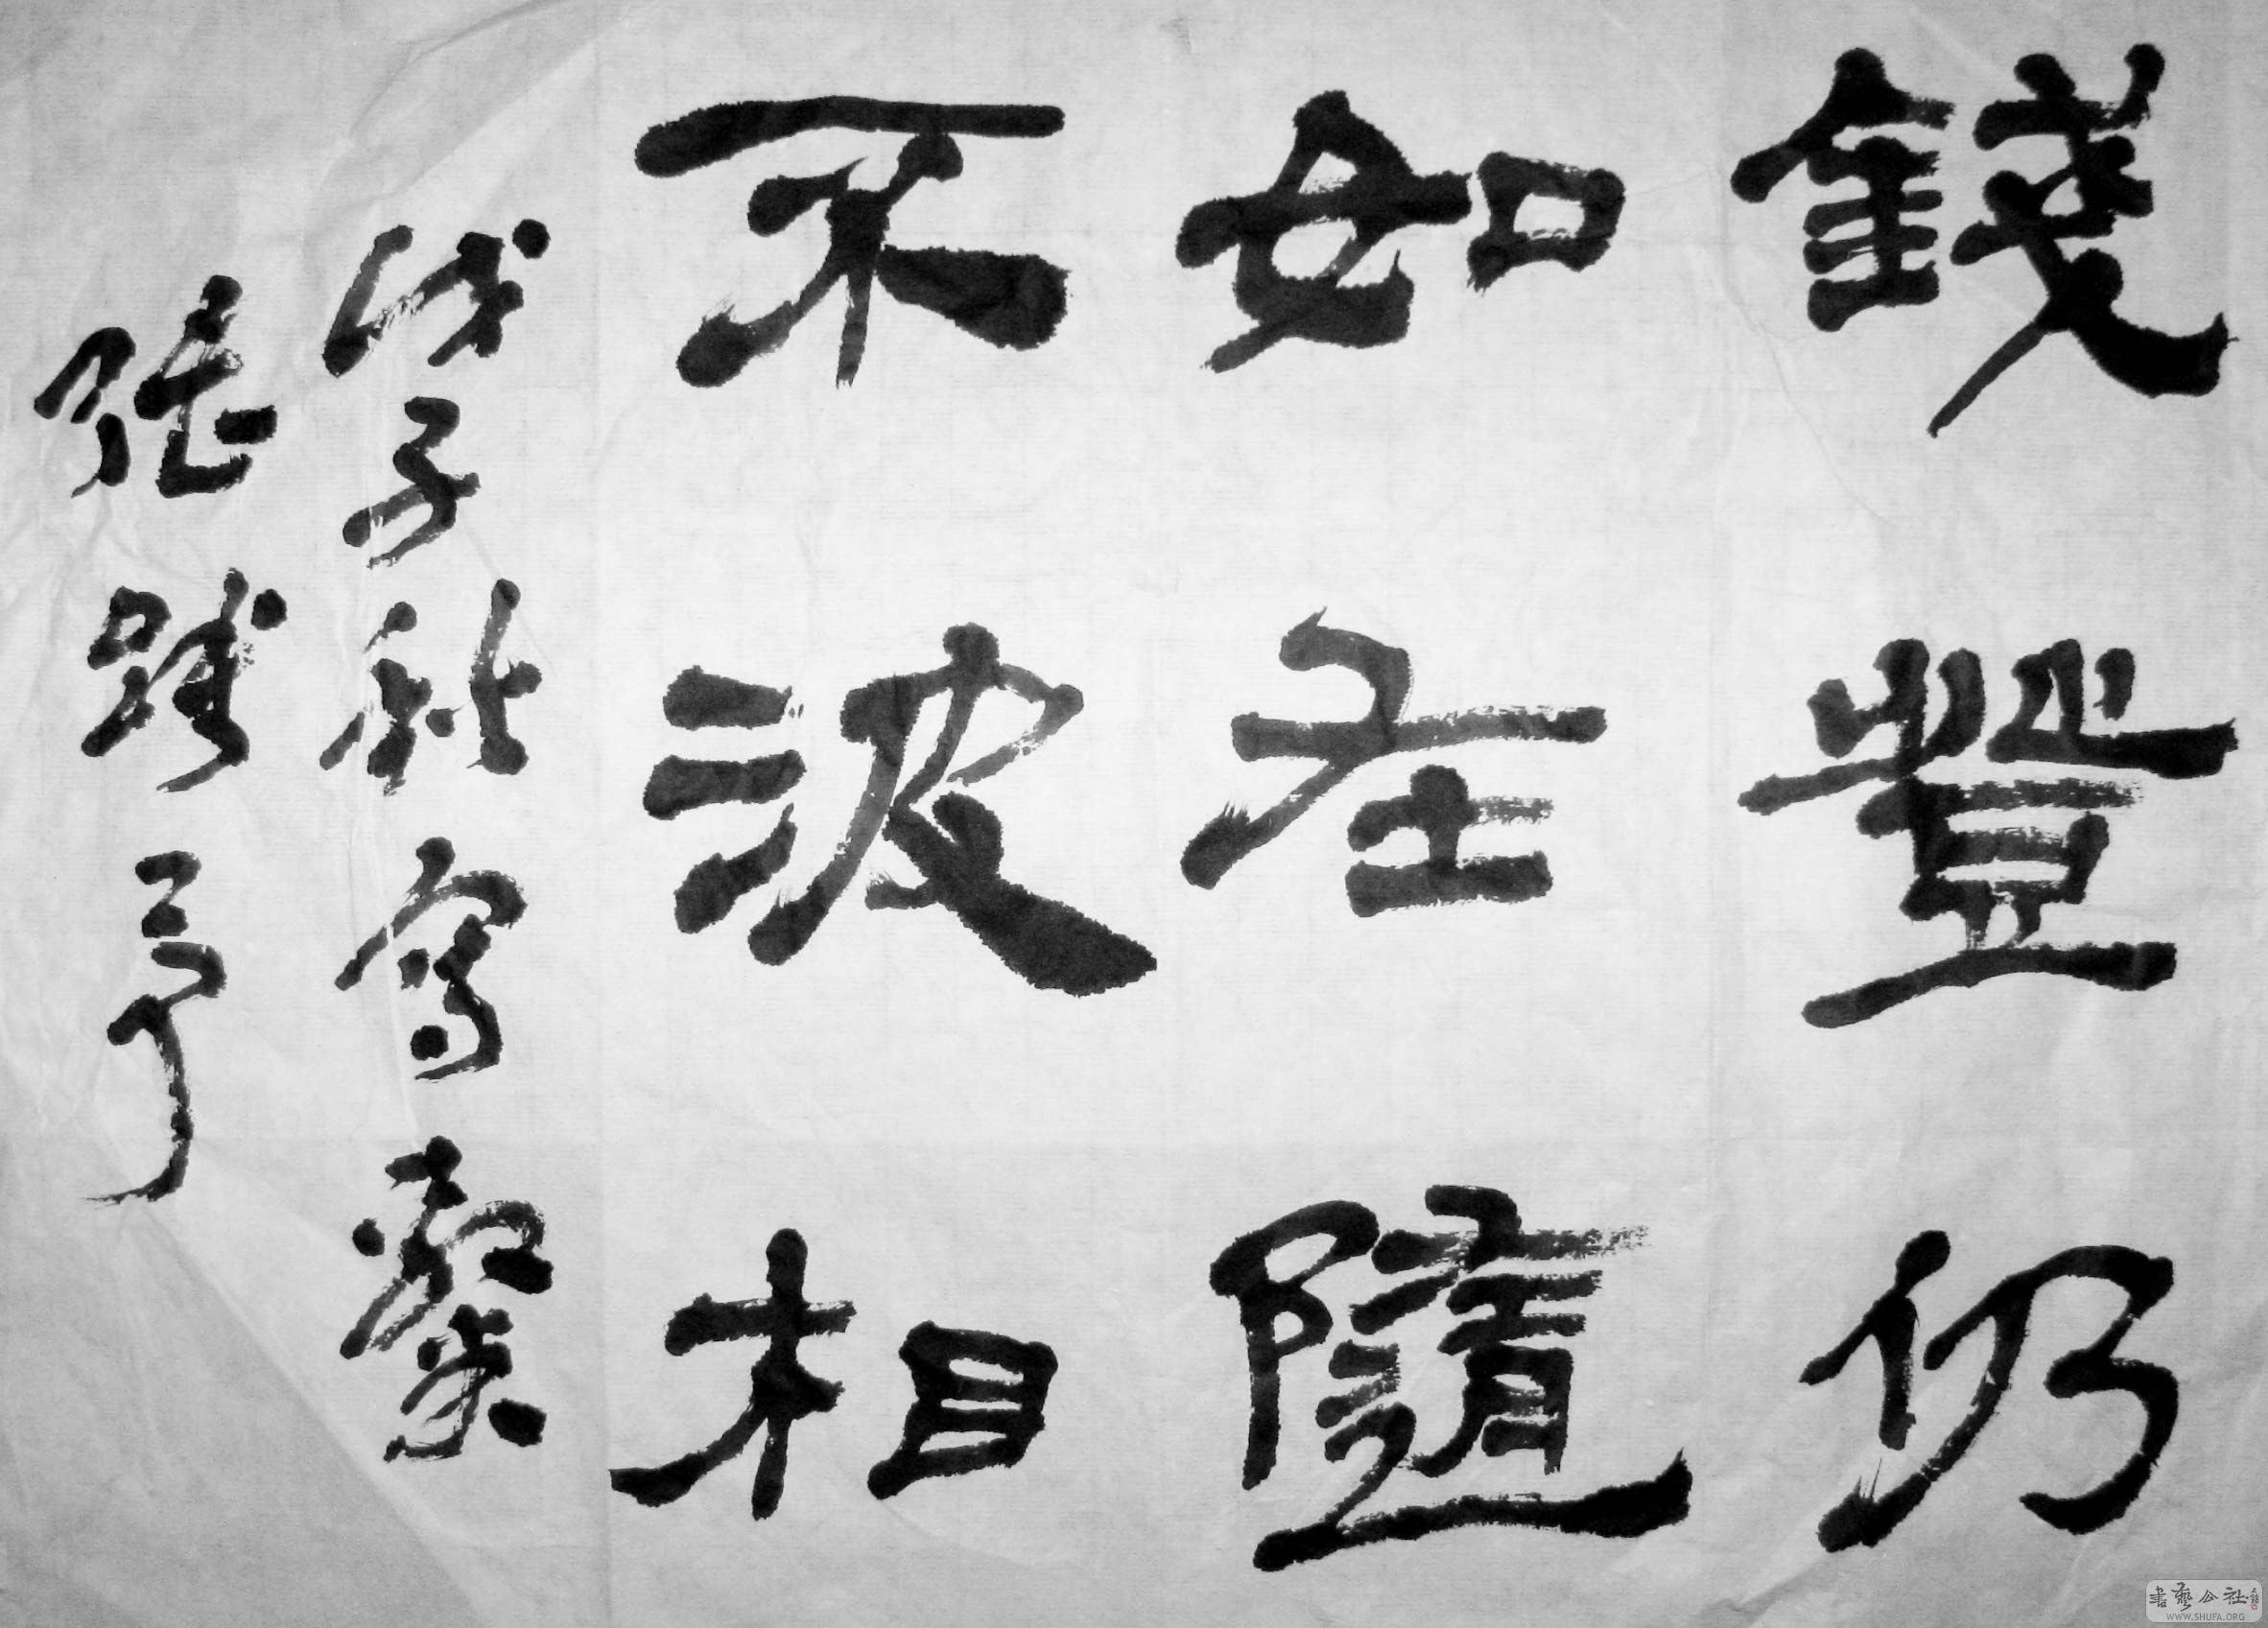 錢登仍
如在隨
不波相
戊子秋寫
張踐
書藝公社
WWW.SHUFA.ORG